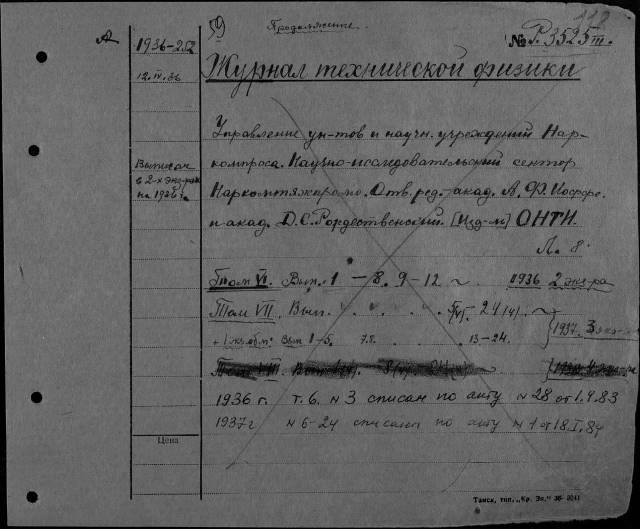 Продолжение
А
1936-252
№ Р.3525 III.
12.IV.36
Журнал технической физики
Управление ун-тов и научн. учреждений Нар-
компроса. Научно-исследовательский сектор
Выписан
в 2-х экз-рах
на 1936 г.
Наркомтяжпрома. Отв. ред. акад. А. Ф. Иоффе.
и акад. Д. С. Рождественский. [Изд-м] ОНТИ.
Л. 8°
Том VI. Вып. 1 — 8. 9-12 1936 2 экз-ра
Том VII, Вып. 24
+ 1 экз. вып 1-5. 7.8. 13-24.
1937. 3 экз
1936 г. т. 6. N 3 списан по акту N 28 от 1.4.83
1937 г N 6-24 списаны по акту N 1 от 18.I.84
Цена
Томск, тип. „Кр. Зн." 36-